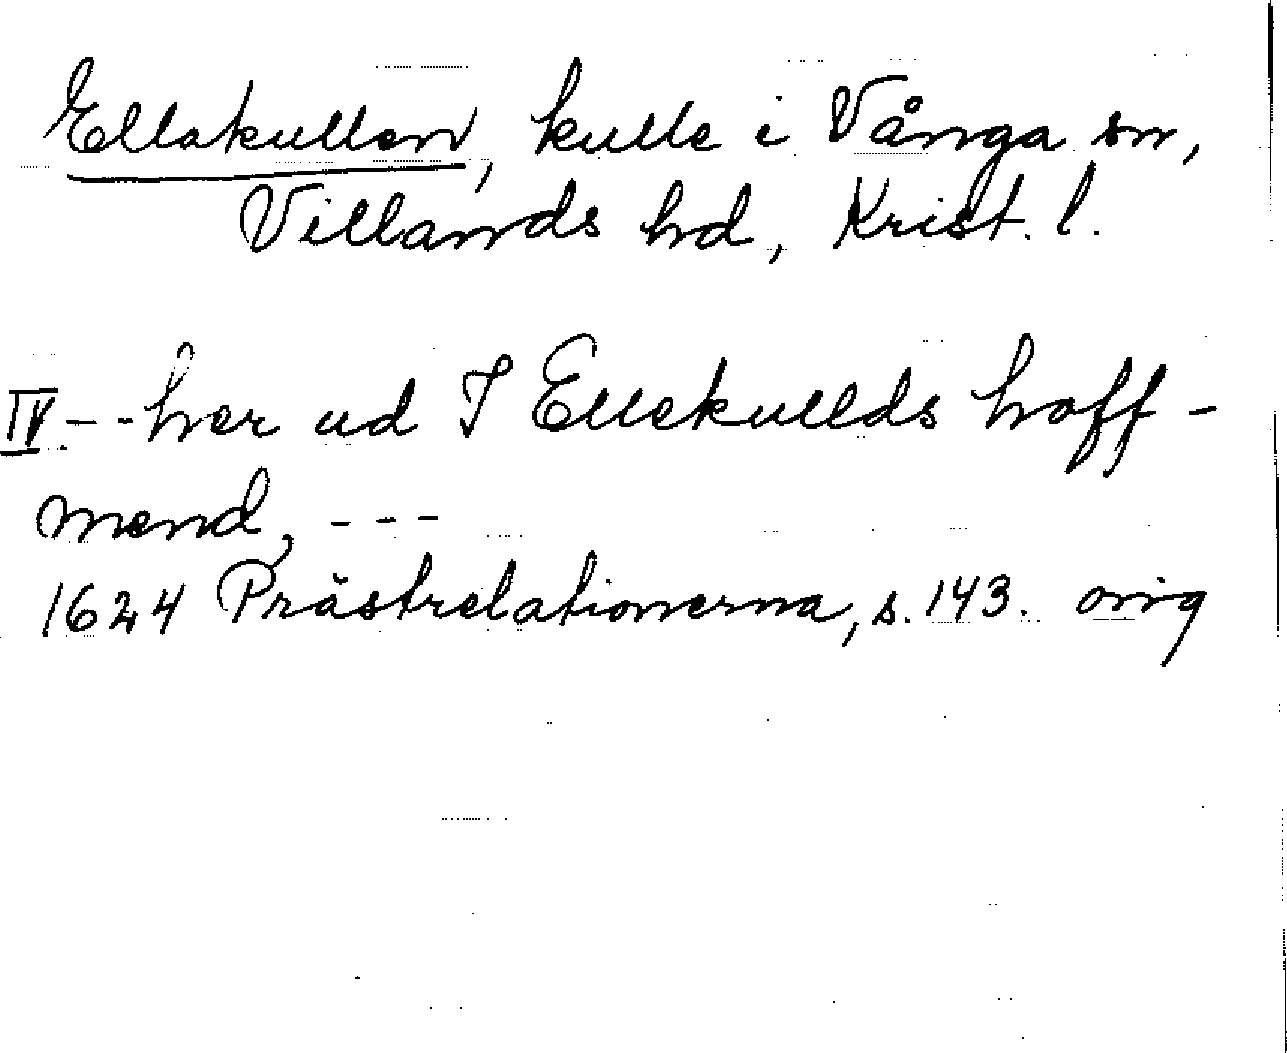 Ellakullen, kulle i Vånga sn,
Villands hd, Krist. l.
IV. - - her ud I Ellekullds hoff-
mend, - - -
1624 Prästrelationerna, s. 143. orig